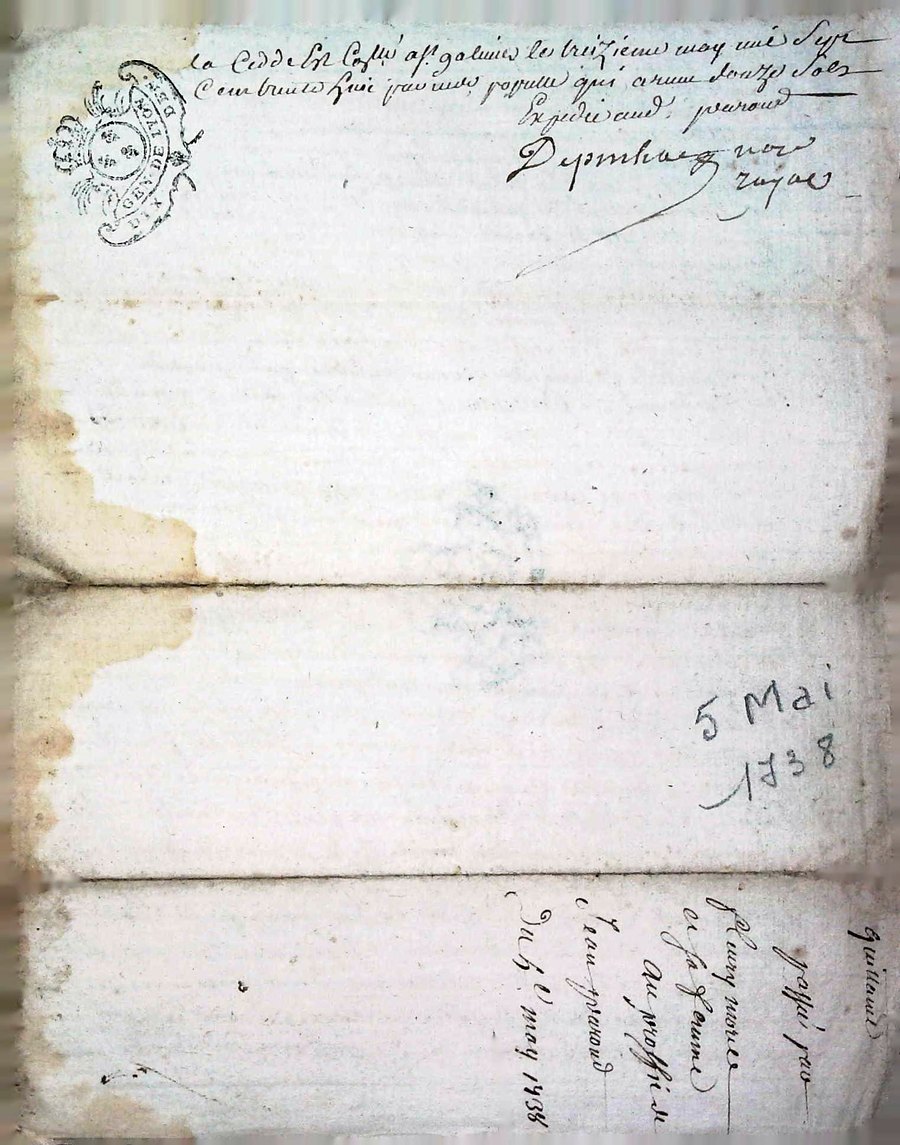 la Cedde Est Collé a St galmier le treizieme may mil Sept
Cent trente huit par moy qui a receu douze Sols
Expedié aud. parand
nore
royal
GEN DE LYON
DIX DER
5 Mai
1738
quittance
passé par
fleury morel
et sa femme
au proffit de
Jean parand
Du 5e may 1738